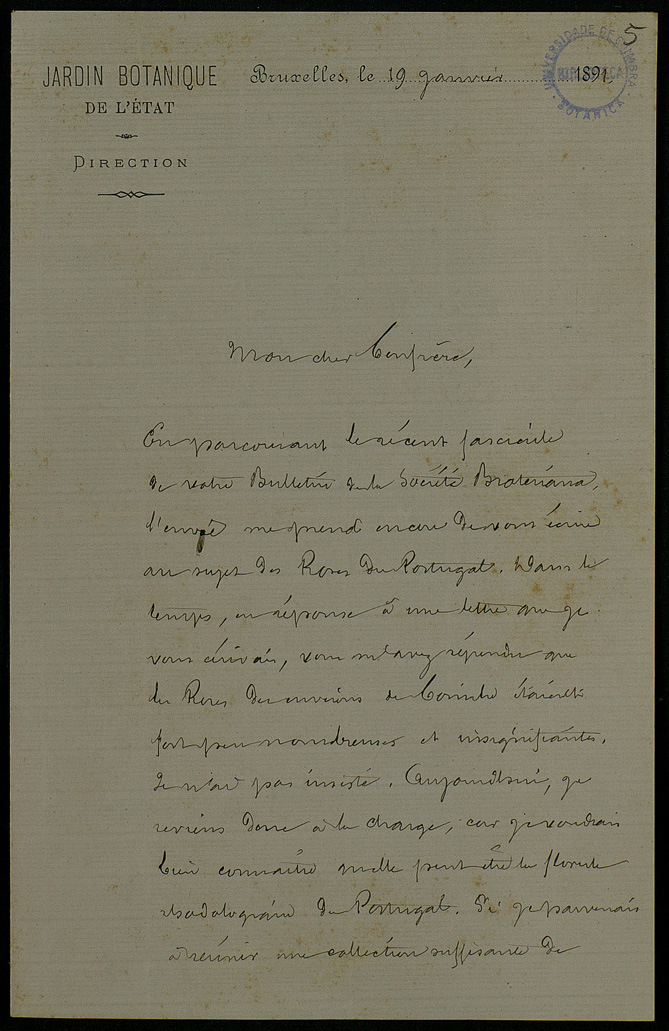 5
UNIVERSIDADE DE COIMBRA
BIBLIOTECA
BOTANICA
JARDIN BOTANIQUE
DE L'ÉTAT
DIRECTION
Bruxelles, le 19 janvier 1891
Mon cher Confrère,
En parcourant le récent fascicule
de votre Bulletin de la Société Broteriana,
l'envie me prend encore de vous écrire
au sujet des Roses du Portugal. Dans le
temps, en réponse à une lettre que je
vous écrivais, vous m'avez répondu que
les Roses des environs de Coimbre étaient
fort peu nombreuses et insignifiantes.
Je n'ai pas insisté. Aujourd'hui, je
reviens donc à la charge, car je voudrais
bien connaître quelle peut être la florule
rhodologique du Portugal. Si je parvenais
à réunir une collection suffisante de